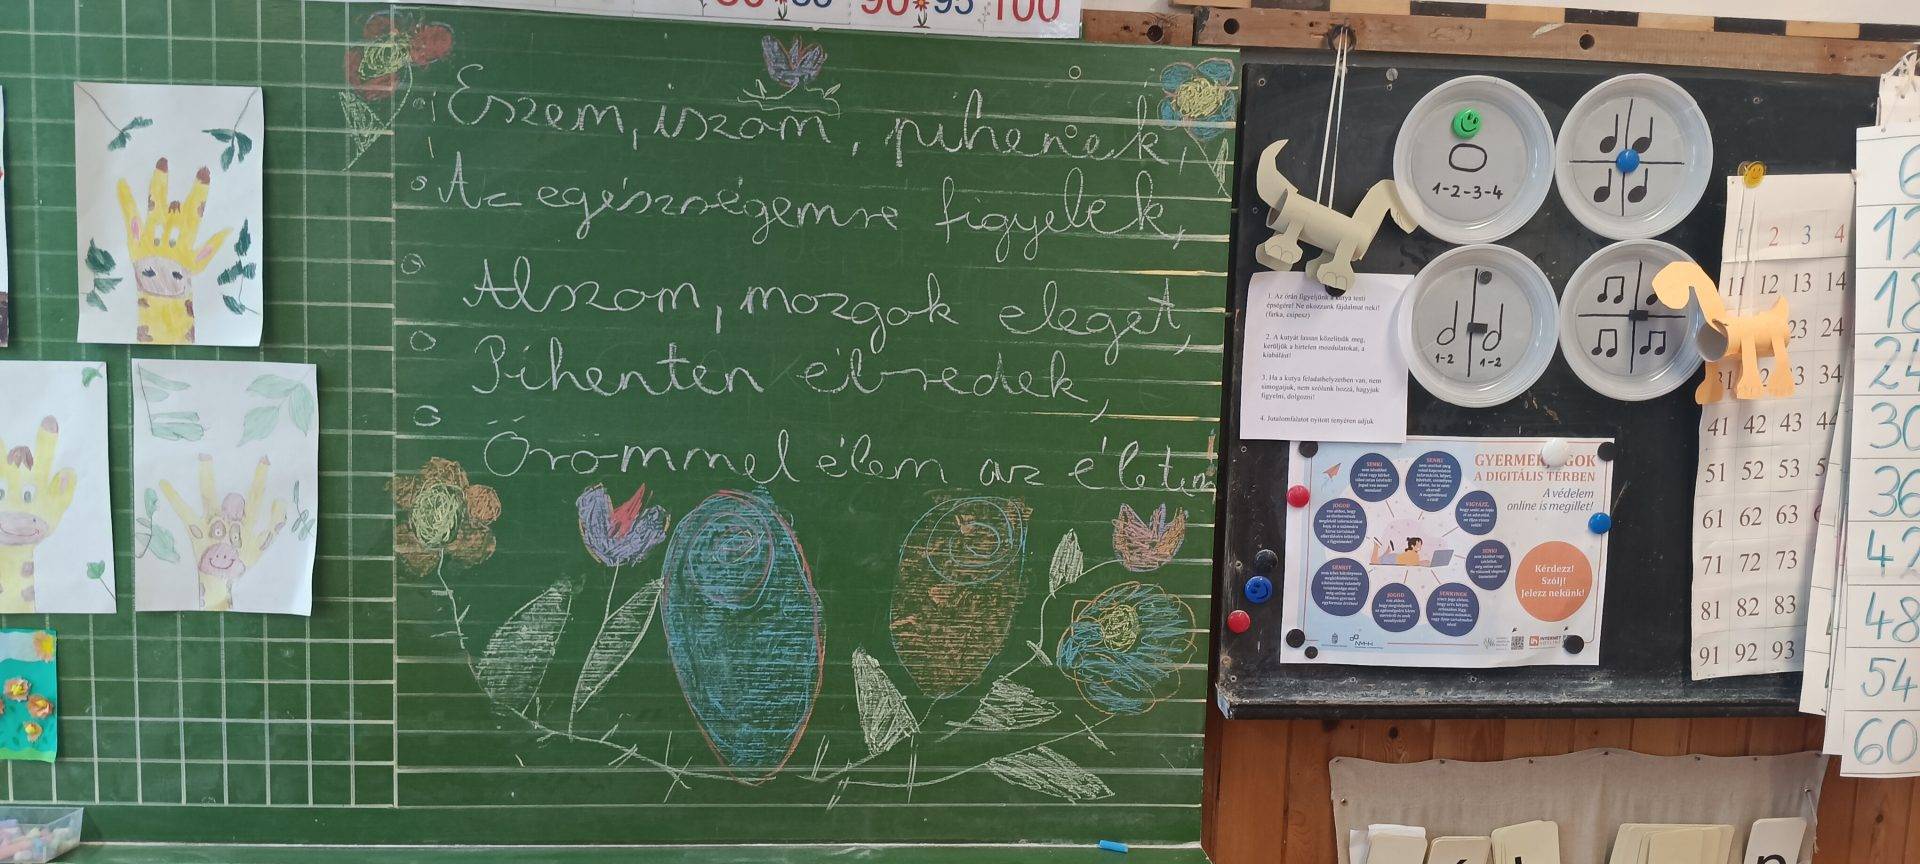 80 90 95 100
Eszem, iszom, pihenek,
Az egészségemre figyelek,
Alszom, mozgok eleget,
Pihenten ébredek,
Örömmel élem az életem
1-2-3-4
1-2 1-2
1. Az órán figyeljünk a kutya testi
épségére! Ne okozzunk fájdalmat neki!
(farka, csipesz)
2. A kutyát lassan közelítsük meg,
kerüljük a hirtelen mozdulatokat, a
kiabálást!
3. Ha a kutya feladathelyzetben van, nem
simogatjuk, nem szólunk hozzá, hagyjuk
figyelni, dolgozni!
4. Jutalomfalatot nyitott tenyéren adjuk
GYERMEKJOGOK
A DIGITÁLIS TÉRBEN
A védelem
online is megillet!
SENKI
SENKI
JOGOD
VIGYÁZZ,
SENKI
SENKIT
JOGOD
SENKINEK
Kérdezz!
Szólj!
Jelezz nekünk!
NMHH
INTERNET
1 2 3 4
11 12 13 14
23 24
31 34
41 42 43 44
51 52 53
61 62 63
71 72 73
81 82 83
91 92 93
6
12
18
24
30
36
42
48
54
60